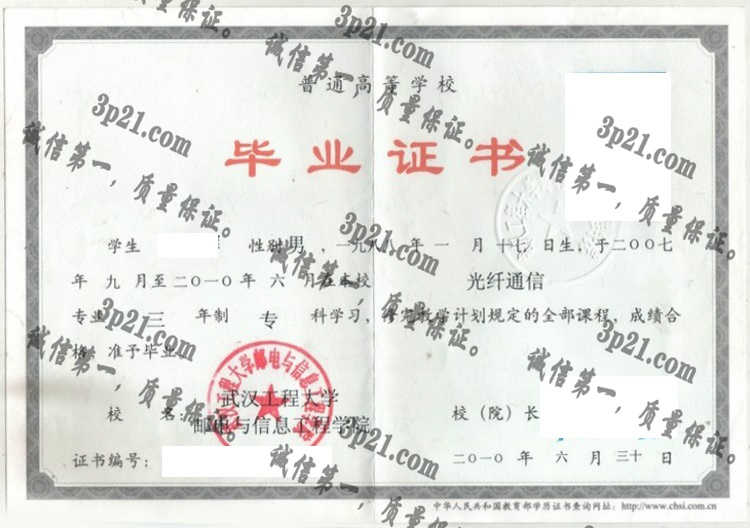 普通高等学校
毕业证书
学生 性别 男 ，一九八八年 一 月 十七 日生，于二〇〇七
年 九 月至二〇一〇年 六 月在本校 光纤通信
专业 三 年制 专 科学习，修完教学计划规定的全部课程，成绩合
格，准予毕业。
武汉工程大学
校 名： 邮电与信息工程学院 校（院）长
证书编号： 二〇一〇年 六 月 三十 日
中华人民共和国教育部学历证书查询网址：http://www.chsi.com.cn
武汉工程大学邮电与信息工程学院
3p21.com
诚信第一，质量保证。
3p21.com
诚信第一，质量保证。
3p21.com
诚信第一，质量保证。
3p21.com
诚信第一，质量保证。
3p21.com
诚信第一，质量保证。
3p21.com
诚信第一，质量保证。
3p21.com
诚信第一，